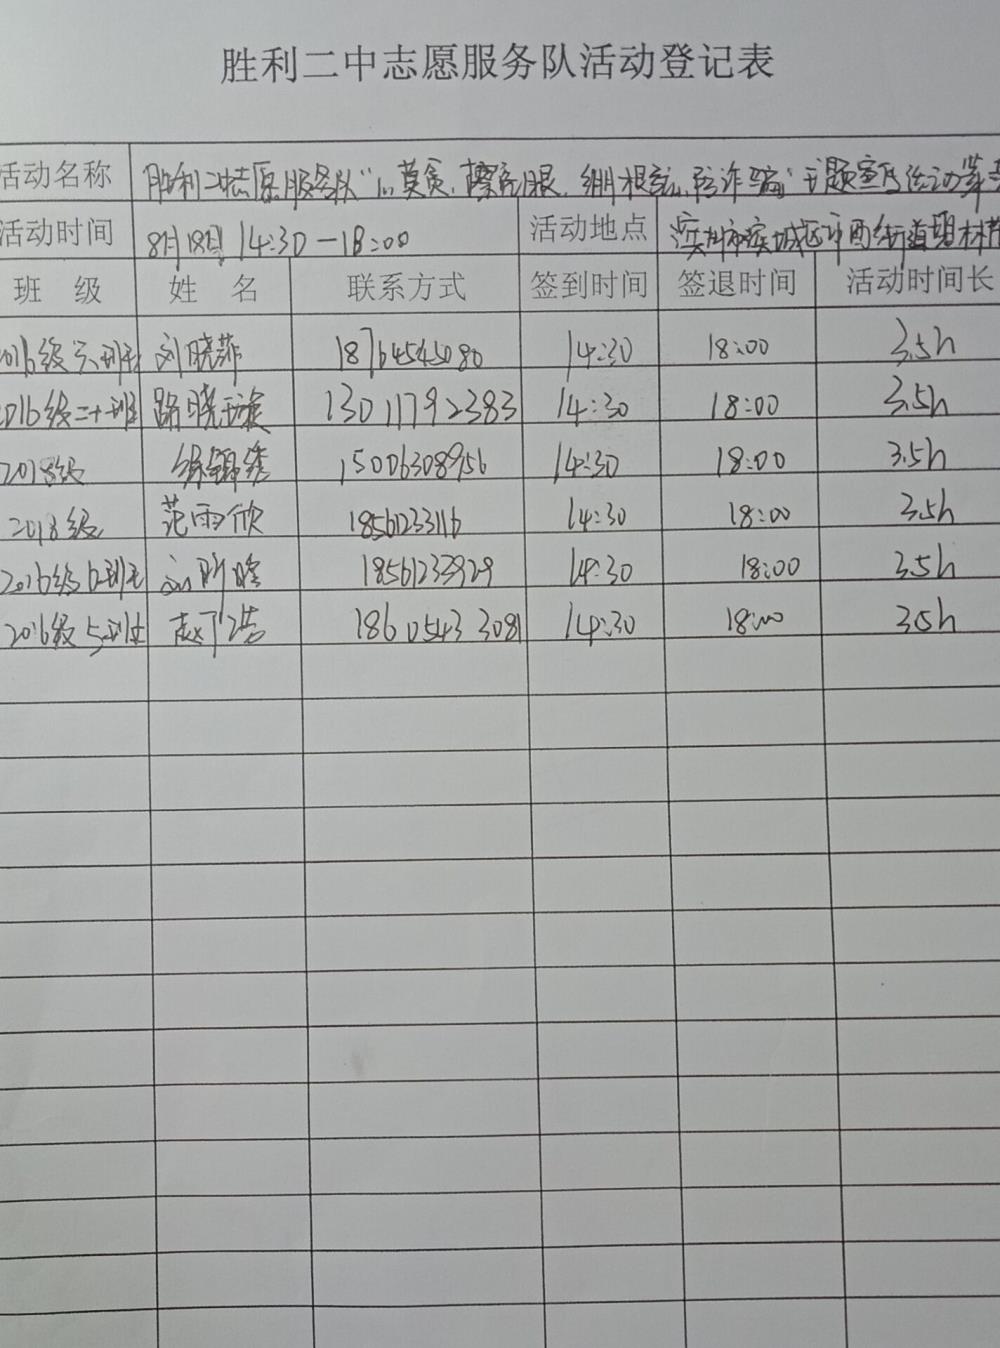 胜利二中志愿服务队活动登记表
活动名称 胜利二中志愿服务队“心莫贪、擦亮眼、绷根弦、防诈骗”主题宣传活动
活动时间 8月18日 14:30-18:00 活动地点 滨州市滨城区市西街道
班 级 姓 名 联系方式 签到时间 签退时间 活动时间长
2016级六班 刘晓菲 18764545080 14:30 18:00 3.5h
2016级二十班 路晓璇 13011792383 14:30 18:00 3.5h
2018级 锦绣 15006308956 14:30 18:00 3.5h
2018级 范雨欣 18561233116 14:30 18:00 3.5h
2016级6班 刘昕 18561233929 14:30 18:00 3.5h
2016级5班 赵 18605433081 14:30 18:00 3.5h